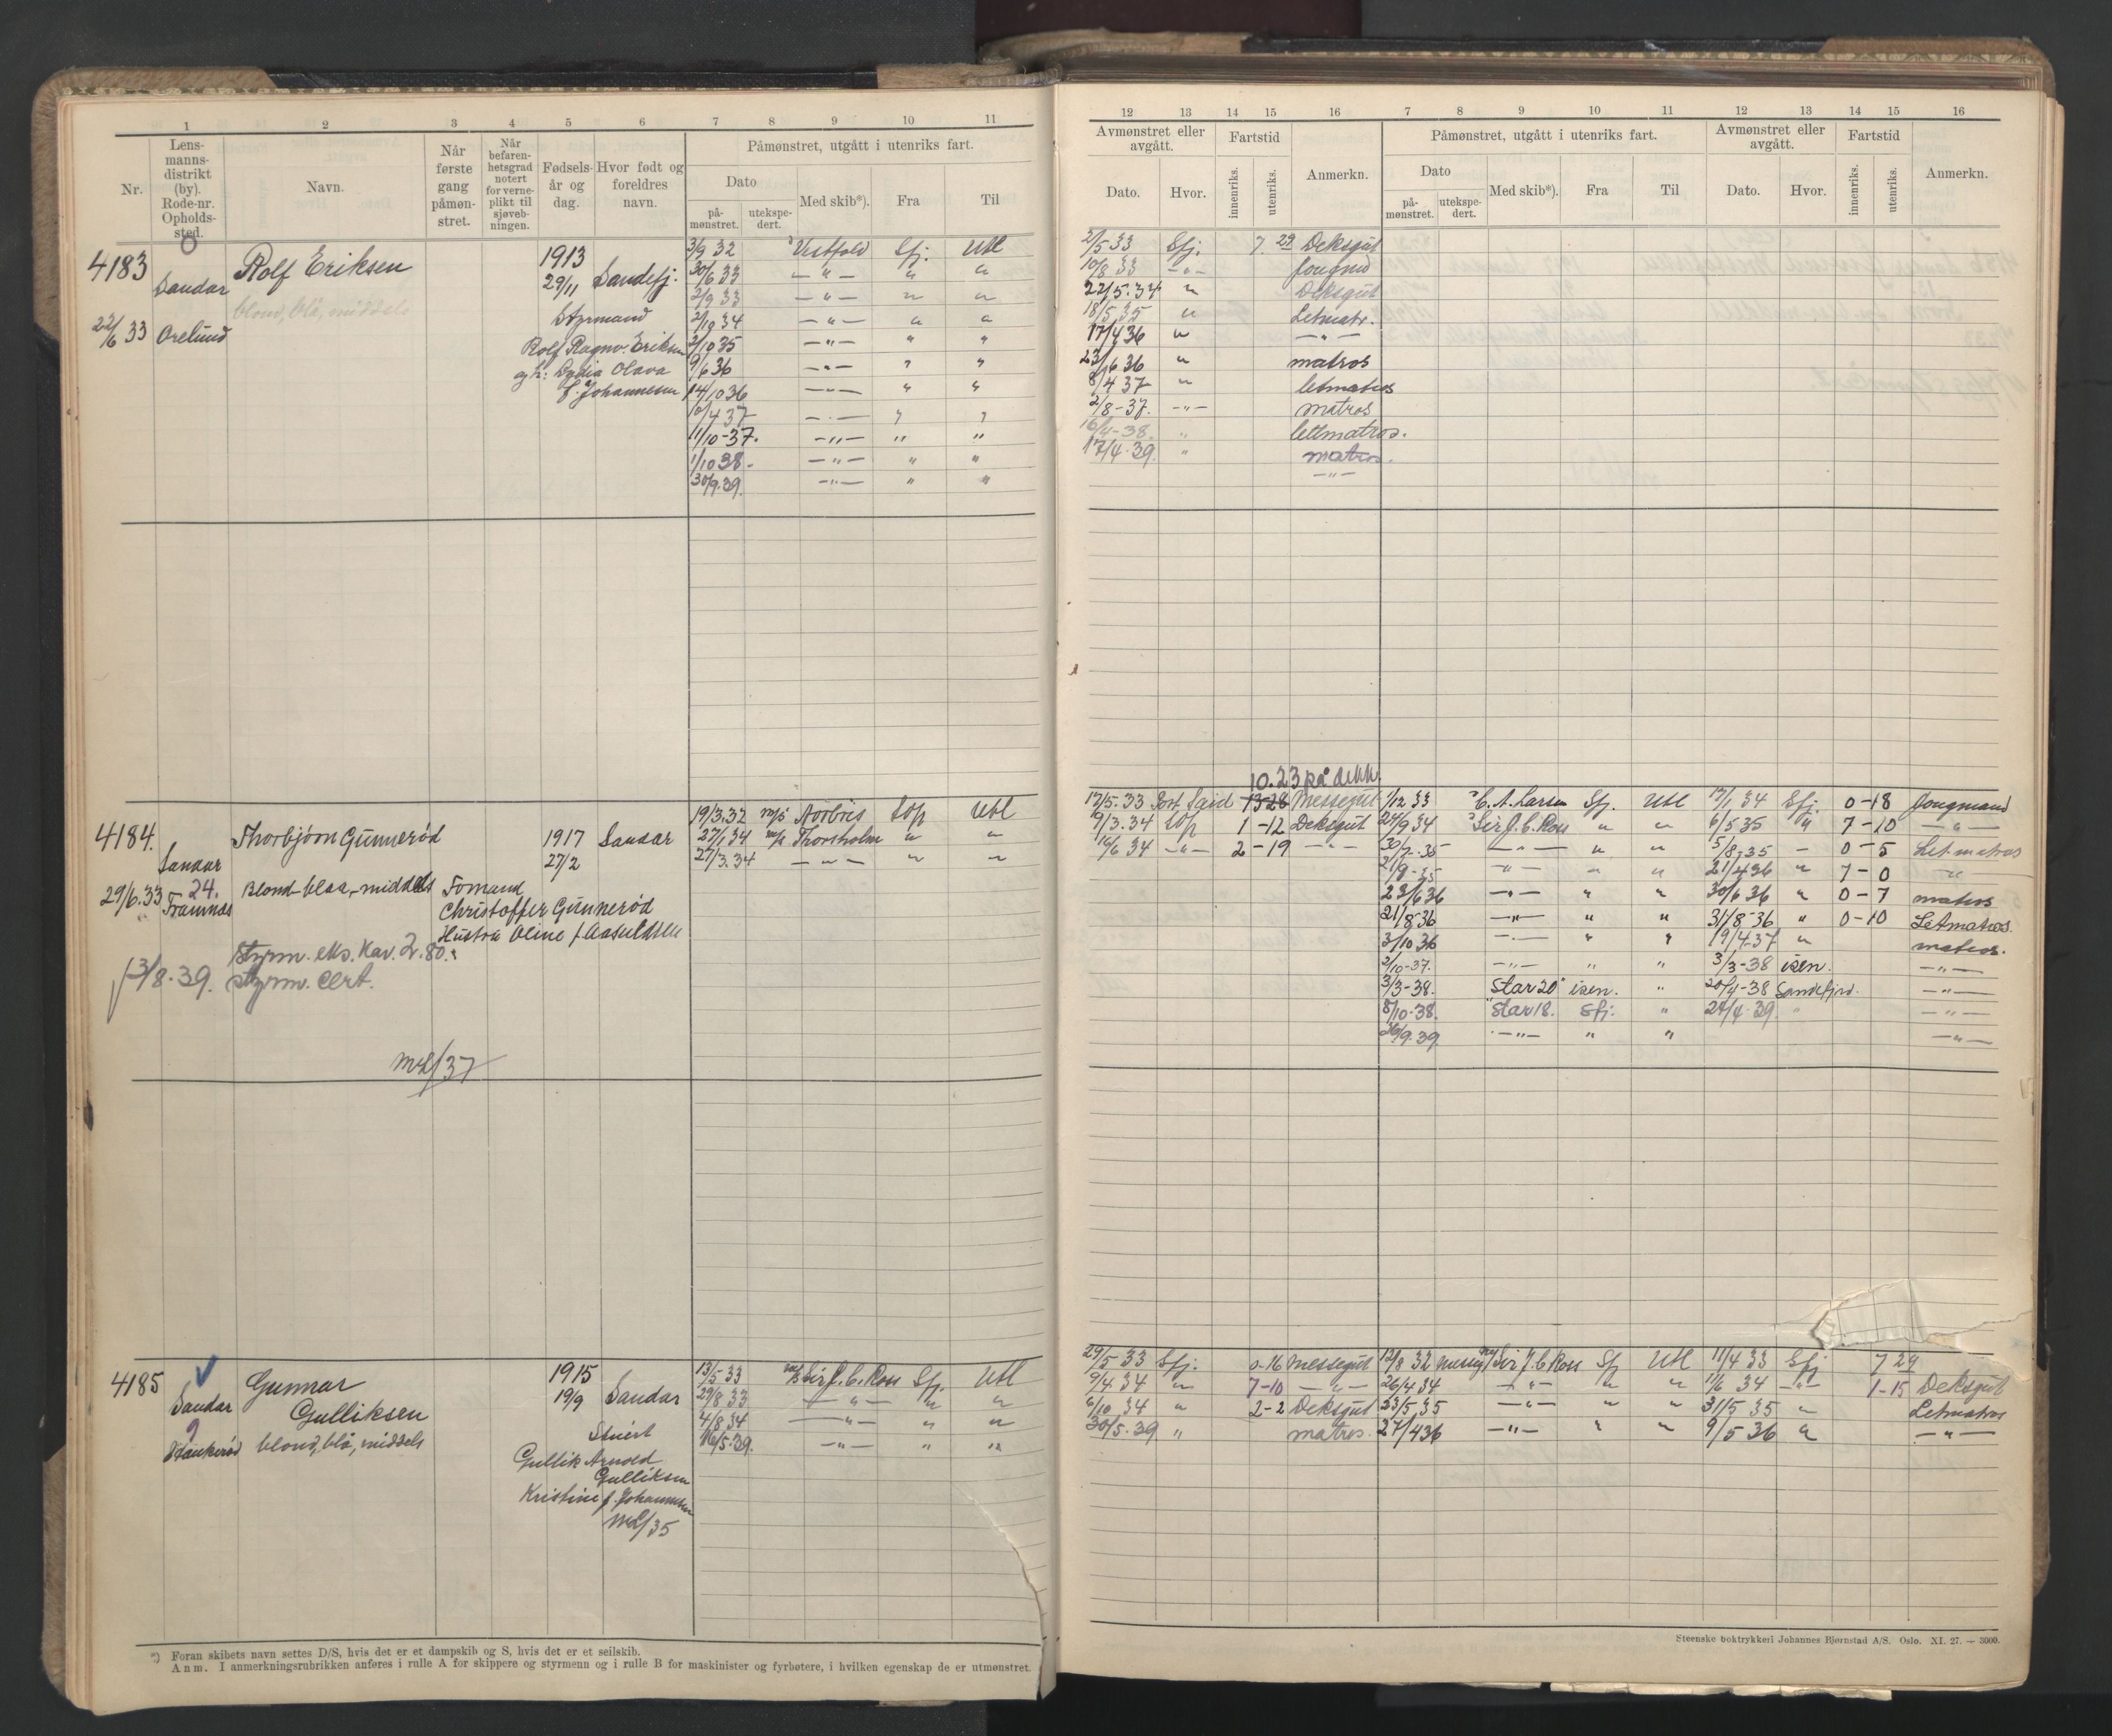 1 2 3 4 5 6 7 8 9 10 11
Nr.
Lens-
manns-
distrikt
(by).
Rode-nr.
Opholds-
sted.
Navn.
Når
første
gang
påmøn-
stret.
Når
befaren-
hetsgrad
notert
for verne-
plikt til
sjøveb-
ningen.
Fødsels-
år og
dag.
Hvor født og
foreldres
navn.
Påmønstret, utgått i utenriks fart.
Dato
på-
mønstret.
utekspe-
dert.
Med skib*).
Fra
Til
4183
Sandar
22/6 33 Orelund
Rolf Eriksen
blond, blå, middels
1913
29/11 Sandefj.
Styrmand
Rolf Ragnv. Eriksen
og h: Lydia Olava
f. Johannesen
3/9 32 Vestfold Sfj. Utl
30/6 33 — " — " "
2/9 33 — " — " "
2/10 34 — " — " "
2/10 35 — " — " "
9/6 36 — " — " "
14/10 36 — " — " "
10/4 37 — " — " "
11/10-37. — " — " "
1/10 38. — " — " "
30/9.39. — " — " "
4184.
Sandar
24.
29/6.33 Framnæs
Thorbjørn Gunnerød
Blond-blaa-middels
1917 Sandar
27/2
Formand
Christoffer Gunnerød
Hustru Oline f. Aasuldsen
Styrm. eks. Kar. 2.80.
13/8.39. Styrm. cert.
19/3.32 m/s Norbris Lóp Utl
27/1 34 m/t Thorsholm " "
27/3.34 — " — " "
4185
Sandar
9
Haukerød
Gunnar
Gulliksen
blond, blå, middels
1915
19/9 Sandar
Stuert
Gullik Arnold
Gulliksen
Kristine f. Johannesen
13/5 33 Sir J. C. Ross Sfj. Utl
29/8 33 — " — " "
4/8 34 — " — " "
16/5.39. — " — " "
*) Foran skibets navn settes D/S, hvis det er et dampskib og S, hvis det er et seilskib.
Anm. I anmerkningsrubrikken anføres i rulle A for skippere og styrmenn og i rulle B for maskinister og fyrbøtere, i hvilken egenskap de er utmønstret.
12 13 14 15 16 7 8 9 10 11 12 13 14 15 16
Avmønstret eller
avgått.
Dato. Hvor.
Fartstid
innenriks. utenriks.
Anmerkn.
Påmønstret, utgått i utenriks fart.
Dato
på-
mønstret.
utekspe-
dert.
Med skib*). Fra Til
Avmønstret eller
avgått.
Dato. Hvor.
Fartstid
innenriks. utenriks.
Anmerkn.
2/5 33 Sfj. 7. 29 Deksgut
10/8 33 — " — Jougmd
22/5.34 " Deksgut
18/5 35 " Letmatr.
17/4 36 " — " —
23/6 36 " matros
8/4 37 " letmatros
2/8-37. — " — matros
16/4-38. " lettmatros.
17/4.39. " matros.
— " —
10.23 på dekk.
17/5.33 Port Said 13-28 Messegut 1/12 33 C. A. Larsen Sfj. Utl 19/1 34 Sfj. 0-18 Jougmand
9/3.34 Lóp 1-12 Deksgut 24/9 34 Sir J. C. Ross " " 6/5 35 " 7-10 — " —
16/6 34 — " — 2-19 — " — 30/7.35 — " — " " 5/8.35 — 0-5 Letmatros
21/9.35 — " — " " 21/4 36 " 7-0 — " —
23/6 36 — " — " " 30/6 36 " 0-7 matros
21/8 36 — " — " " 31/8-36 " 0-10 Letmatros.
3/10 36 — " — " " 19/4 37 " matros.
2/10-37. — " — " " 3/3-38 isen. — " —
3/3-38. "Star 20" isen. " 20/4-38 Sandefjord. — " —
8/10-38. "Star 18. Sfj. " 24/4.39. " — " —
26/9.39 — " — " " — " —
29/5 33 Sfj. 0-16 Messegut 12/8 32 Messeg Sir J. C. Ross Sf Utl 11/4 33 Sfj 7 29
9/4 34 " 7-10 — " — 26/4 34 — " — " " 11/6 34 — " — 1-15 Deksgut
6/10 34 " 2-2 Deksgut 23/5 35 — " — " " 31/5 35 " Letmatros
30/5.39 " matros. 27/4 36 — " — " " 9/5-36 " — " —
Steenske boktrykkeri Johannes Bjørnstad A/S. Oslo. XI. 27. — 3000.